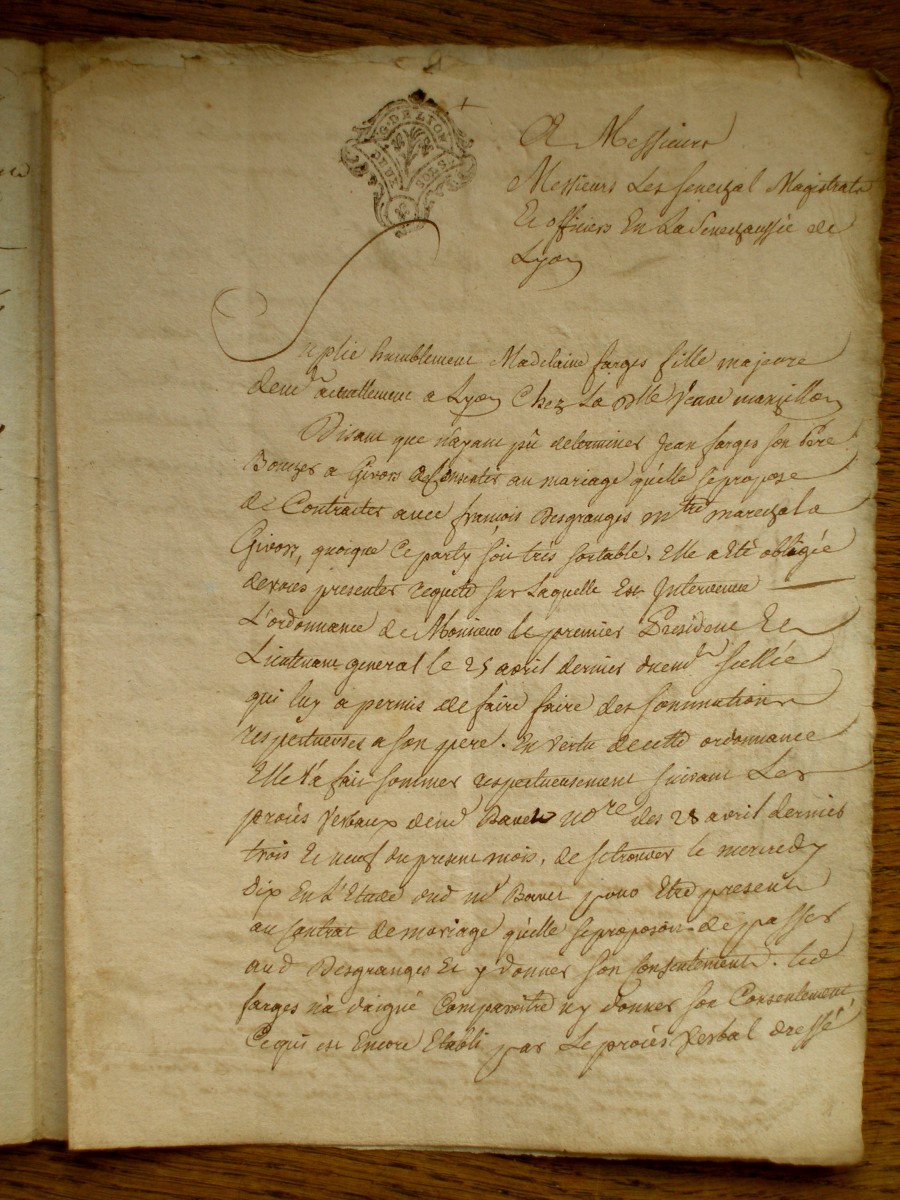 G. DE LYON
DEUX SOLS
A Messieurs
Messieurs Les Senechal Magistrats
Et officiers En La Senechaussée de
Lyon
Suplie humblement Madelaine farges fille majeure
demt actuellement a Lyon Chez La dlle Veuve
Disant que n'ayant pû determiner Jean farges son Père
a Givors de Consentir au mariage qu'elle se propose
de Contracter avec françois Desgranges mtre marechal a
Givors, quoique Ce party soit très sortable. Elle a Eté obligée
devous presenter requete sur Laquelle Est Intervenue
L'ordonnance de Monsieur le premier President Et
Lieutenant general le 25 avril dernier scellée
qui luy a permis de faire faire des sommations
respectueuses a son pere. En vertu de cette ordonnance
Elle l'a fait sommer respectueusement suivant Les
procès Verbaux de nore des 28 avril dernier
trois Et neuf du present mois, de se trouver le mercredy
dix En L'Etude dud me pour Etre present
au Contrat de mariage qu'elle se proposoit de passer
aud Desgranges Et y donner son Consentement. led
farges n'a daigné Comparoitre ny donner son Consentement,
Ce qui est Encore Etabli par Le procès Verbal dressé